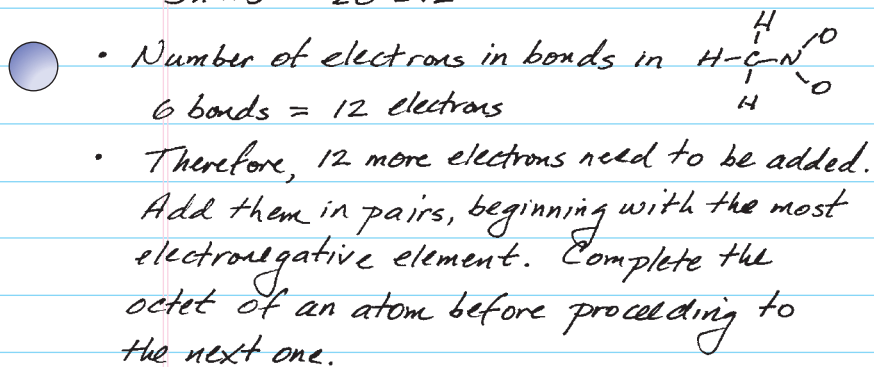 • Number of electrons in bonds in
H
H-C-N
O
O
H
6 bonds = 12 electrons
• Therefore, 12 more electrons need to be added.
Add them in pairs, beginning with the most
electronegative element. Complete the
octet of an atom before proceeding to
the next one.